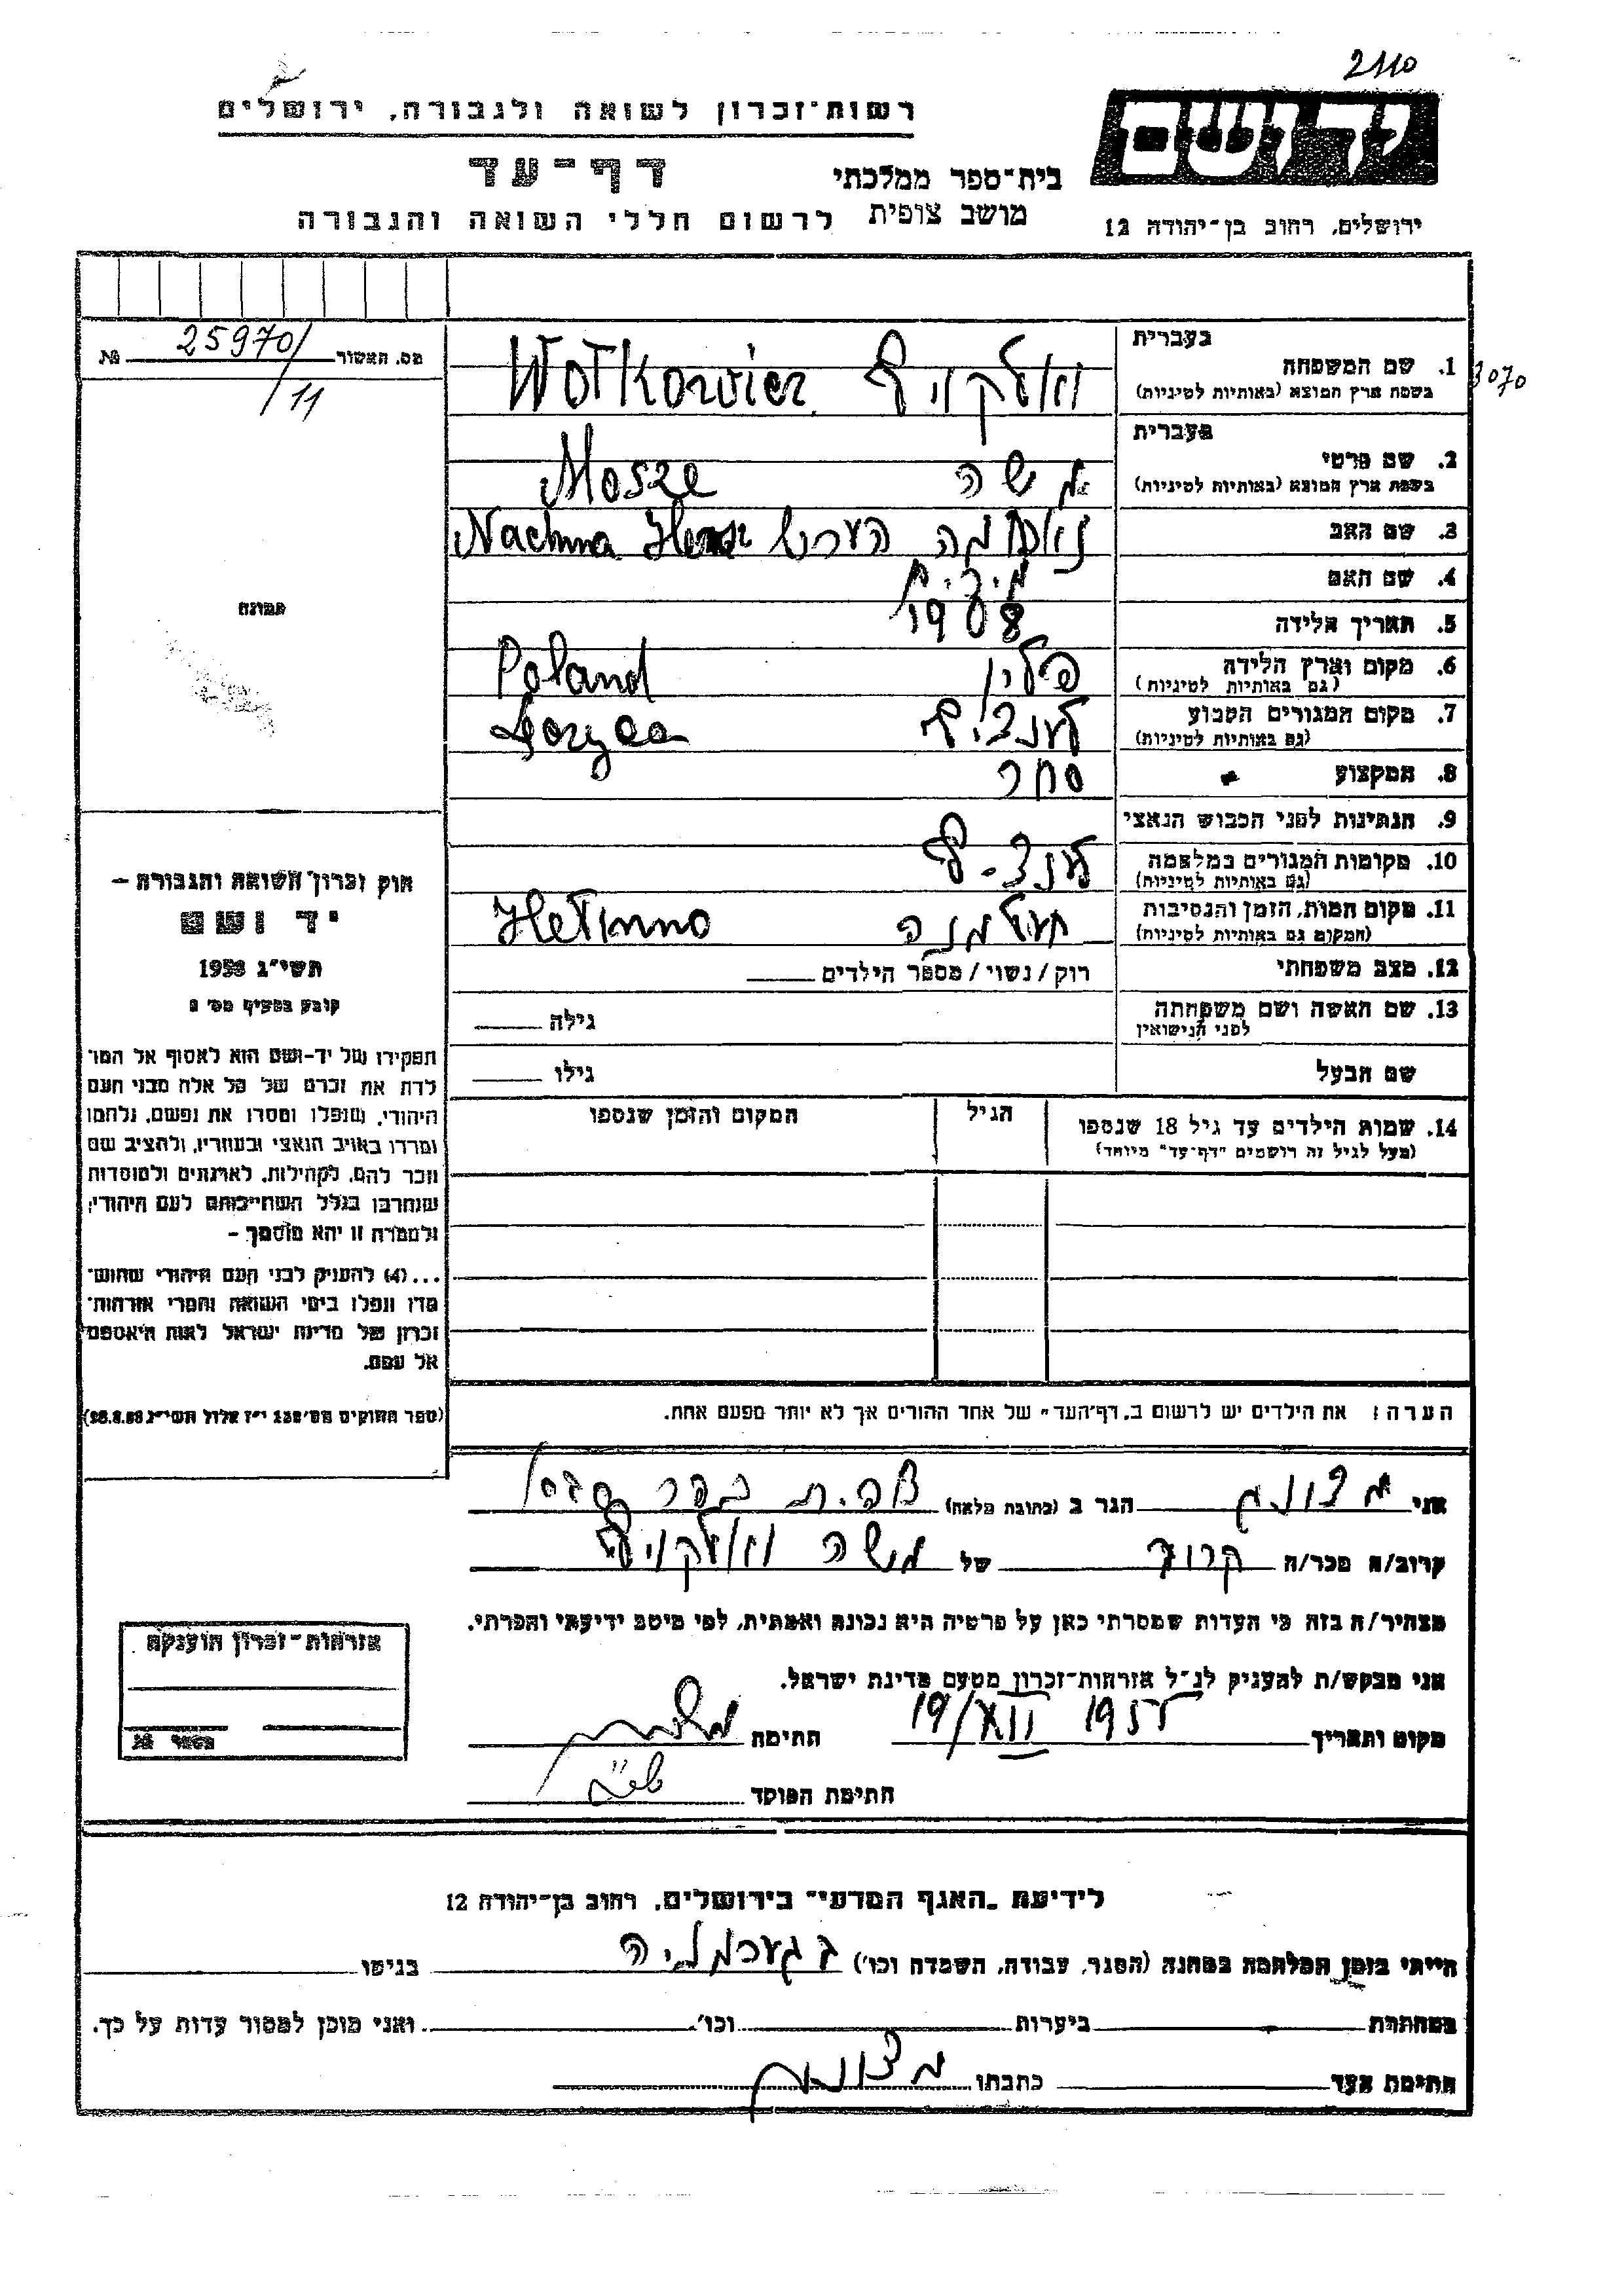 2110
יד ושם
רשות־זכרון לשואה ולגבורה, ירושלים
דף־עד
בית־ספר ממלכתי
מושב צופית
לרשום חללי השואה והגבורה
ירושלים, רחוב בן־יהודה 12
מס. האשור 25970/ №
/11
3070
1. שם המשפחה
בעברית
בשפת ארץ המוצא (באותיות לטיניות)
וואלקוויץ Wołkowicz
2. שם פרטי
בעברית
בשפת ארץ המוצא (באותיות לטיניות)
משה Mosze
3. שם האב
הערש Nachma
4. שם האם
5. תאריך הלידה 1908
6. מקום וארץ הלידה
(גם באותיות לטיניות)
פולין Poland
7. מקום המגורים הקבוע
(גם באותיות לטיניות)
8. המקצוע סחר
9. הנתינות לפני הכבוש הנאצי
10. מקומות המגורים במלחמה
(גם באותיות לטיניות)
11. מקום המות, הזמן והנסיבות
(המקום גם באותיות לטיניות)
Hełmno
12. מצב משפחתי
רוק / נשוי / מספר הילדים
13. שם האשה ושם משפחתה
לפני הנישואין
גילה
שם הבעל
גילו
14. שמות הילדים עד גיל 18 שנספו
(מעל לגיל זה רושמים "דף־עד" מיוחד)
הגיל
המקום והזמן שנספו
הערה: את הילדים יש לרשום ב„דף־העד" של אחד ההורים אך לא יותר מפעם אחת.
תמונה
חוק זכרון השואה והגבורה –
יד ושם
תשי"ג 1953
קובע בסעיף מס' 2
תפקידו של יד-ושם הוא לאסוף אל המו־
לדת את זכרם של כל אלה מבני העם
היהודי, שנפלו ומסרו את נפשם, נלחמו
ומרדו באויב הנאצי ובעוזריו, ולהציב שם
וזכר להם, לקהילות, לארגונים ולמוסדות
שנחרבו בגלל השתייכותם לעם היהודי;
ולמטרה זו יהא מוסמך –
...(4) להעניק לבני העם היהודי שהוש־
מדו ונפלו בימי השואה והמרי אזרחות־
זכרון של מדינת ישראל לאות היאספם
אל עמם.
(ספר החוקים מס' 132 י"ז אלול תשי"ג 28.8.53)
אני הגר ב (כתובת מלאה)
קרוב/ה מכר/ה קרוב של משה וואלקוויץ
מצהיר/ה בזה כי העדות שמסרתי כאן על פרטיה היא נכונה ואמתית, לפי מיטב ידיעתי והכרתי.
אני מבקש/ת להעניק לנ"ל אזרחות־זכרון מטעם מדינת ישראל.
מקום ותאריך 19/XII 1955 חתימה
חתימת הפוקד
אזרחות־זכרון הוענקה
מספר №
לידיעת „האגף המדעי" בירושלים, רחוב בן־יהודה 12
הייתי בזמן המלחמה במחנה (הסגר, עבודה, השמדה וכו') בגיטו
במחתרת ביערות וכו' ואני מוכן למסור עדות על כך.
חתימת העד כתבתו